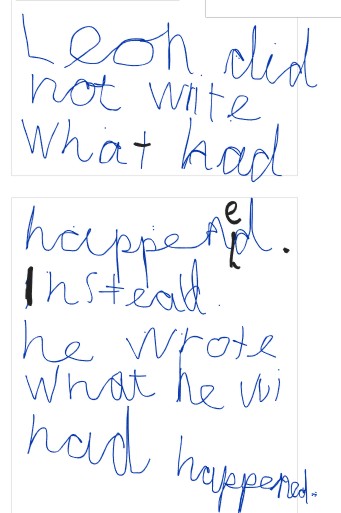 Leon did
not write
what had
happened.
Instead
he wrote
what he wi
had happened.